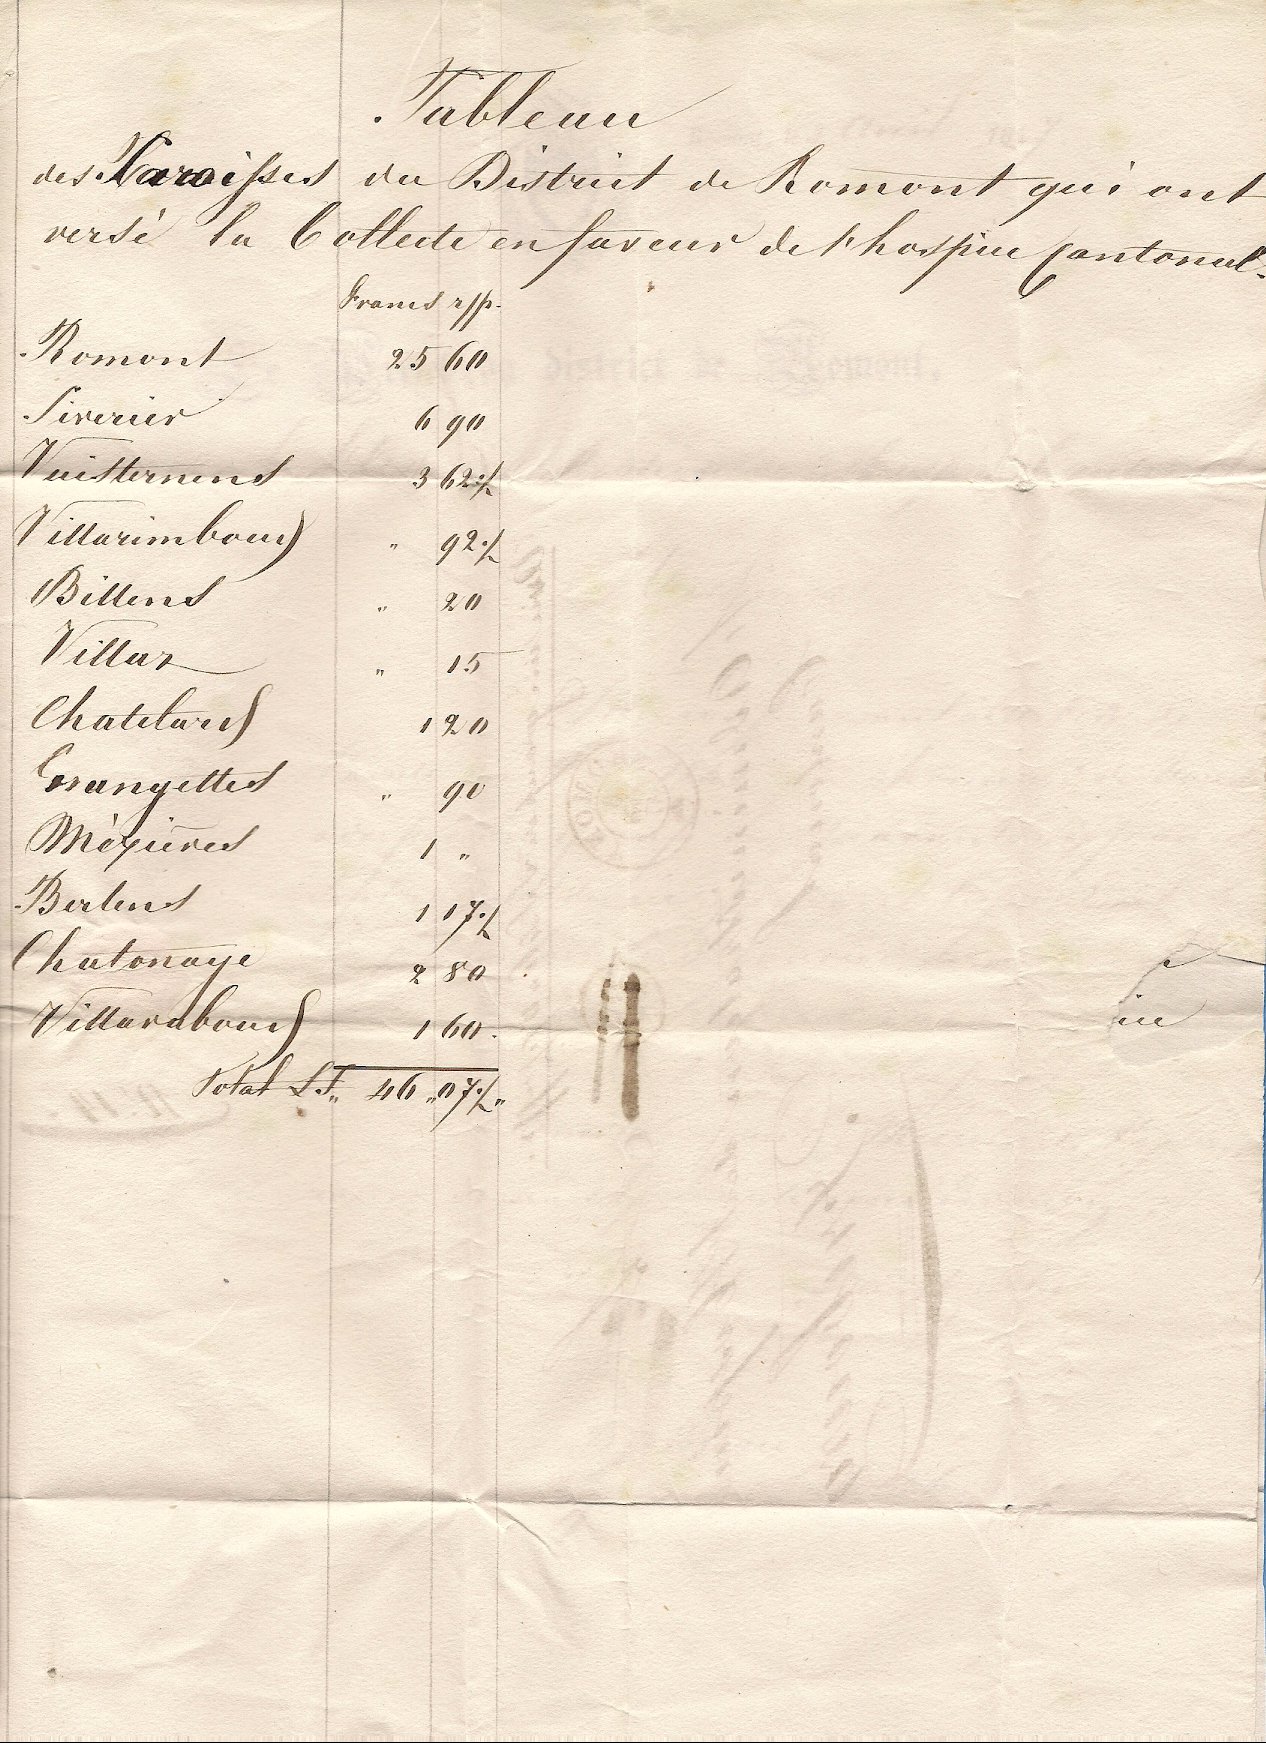 Tableau
des Paroisses du District de Romont qui ont
versé la Collecte en faveur de l'hospice Cantonal.
Francs rpp.
Romont 25 60
Siverier 6 90
Vuisternens 3 62 ./.
Villarimboud " 92 ./.
Billens " 20
Villaz " 15
Chatelard 1 20
Grangettes " 90
Mézières 1 "
Berlens 1 17 ./.
Chatonaye 2 80
Villaraboud 1 60.
Total L.F. " 46 " 07 ./. "